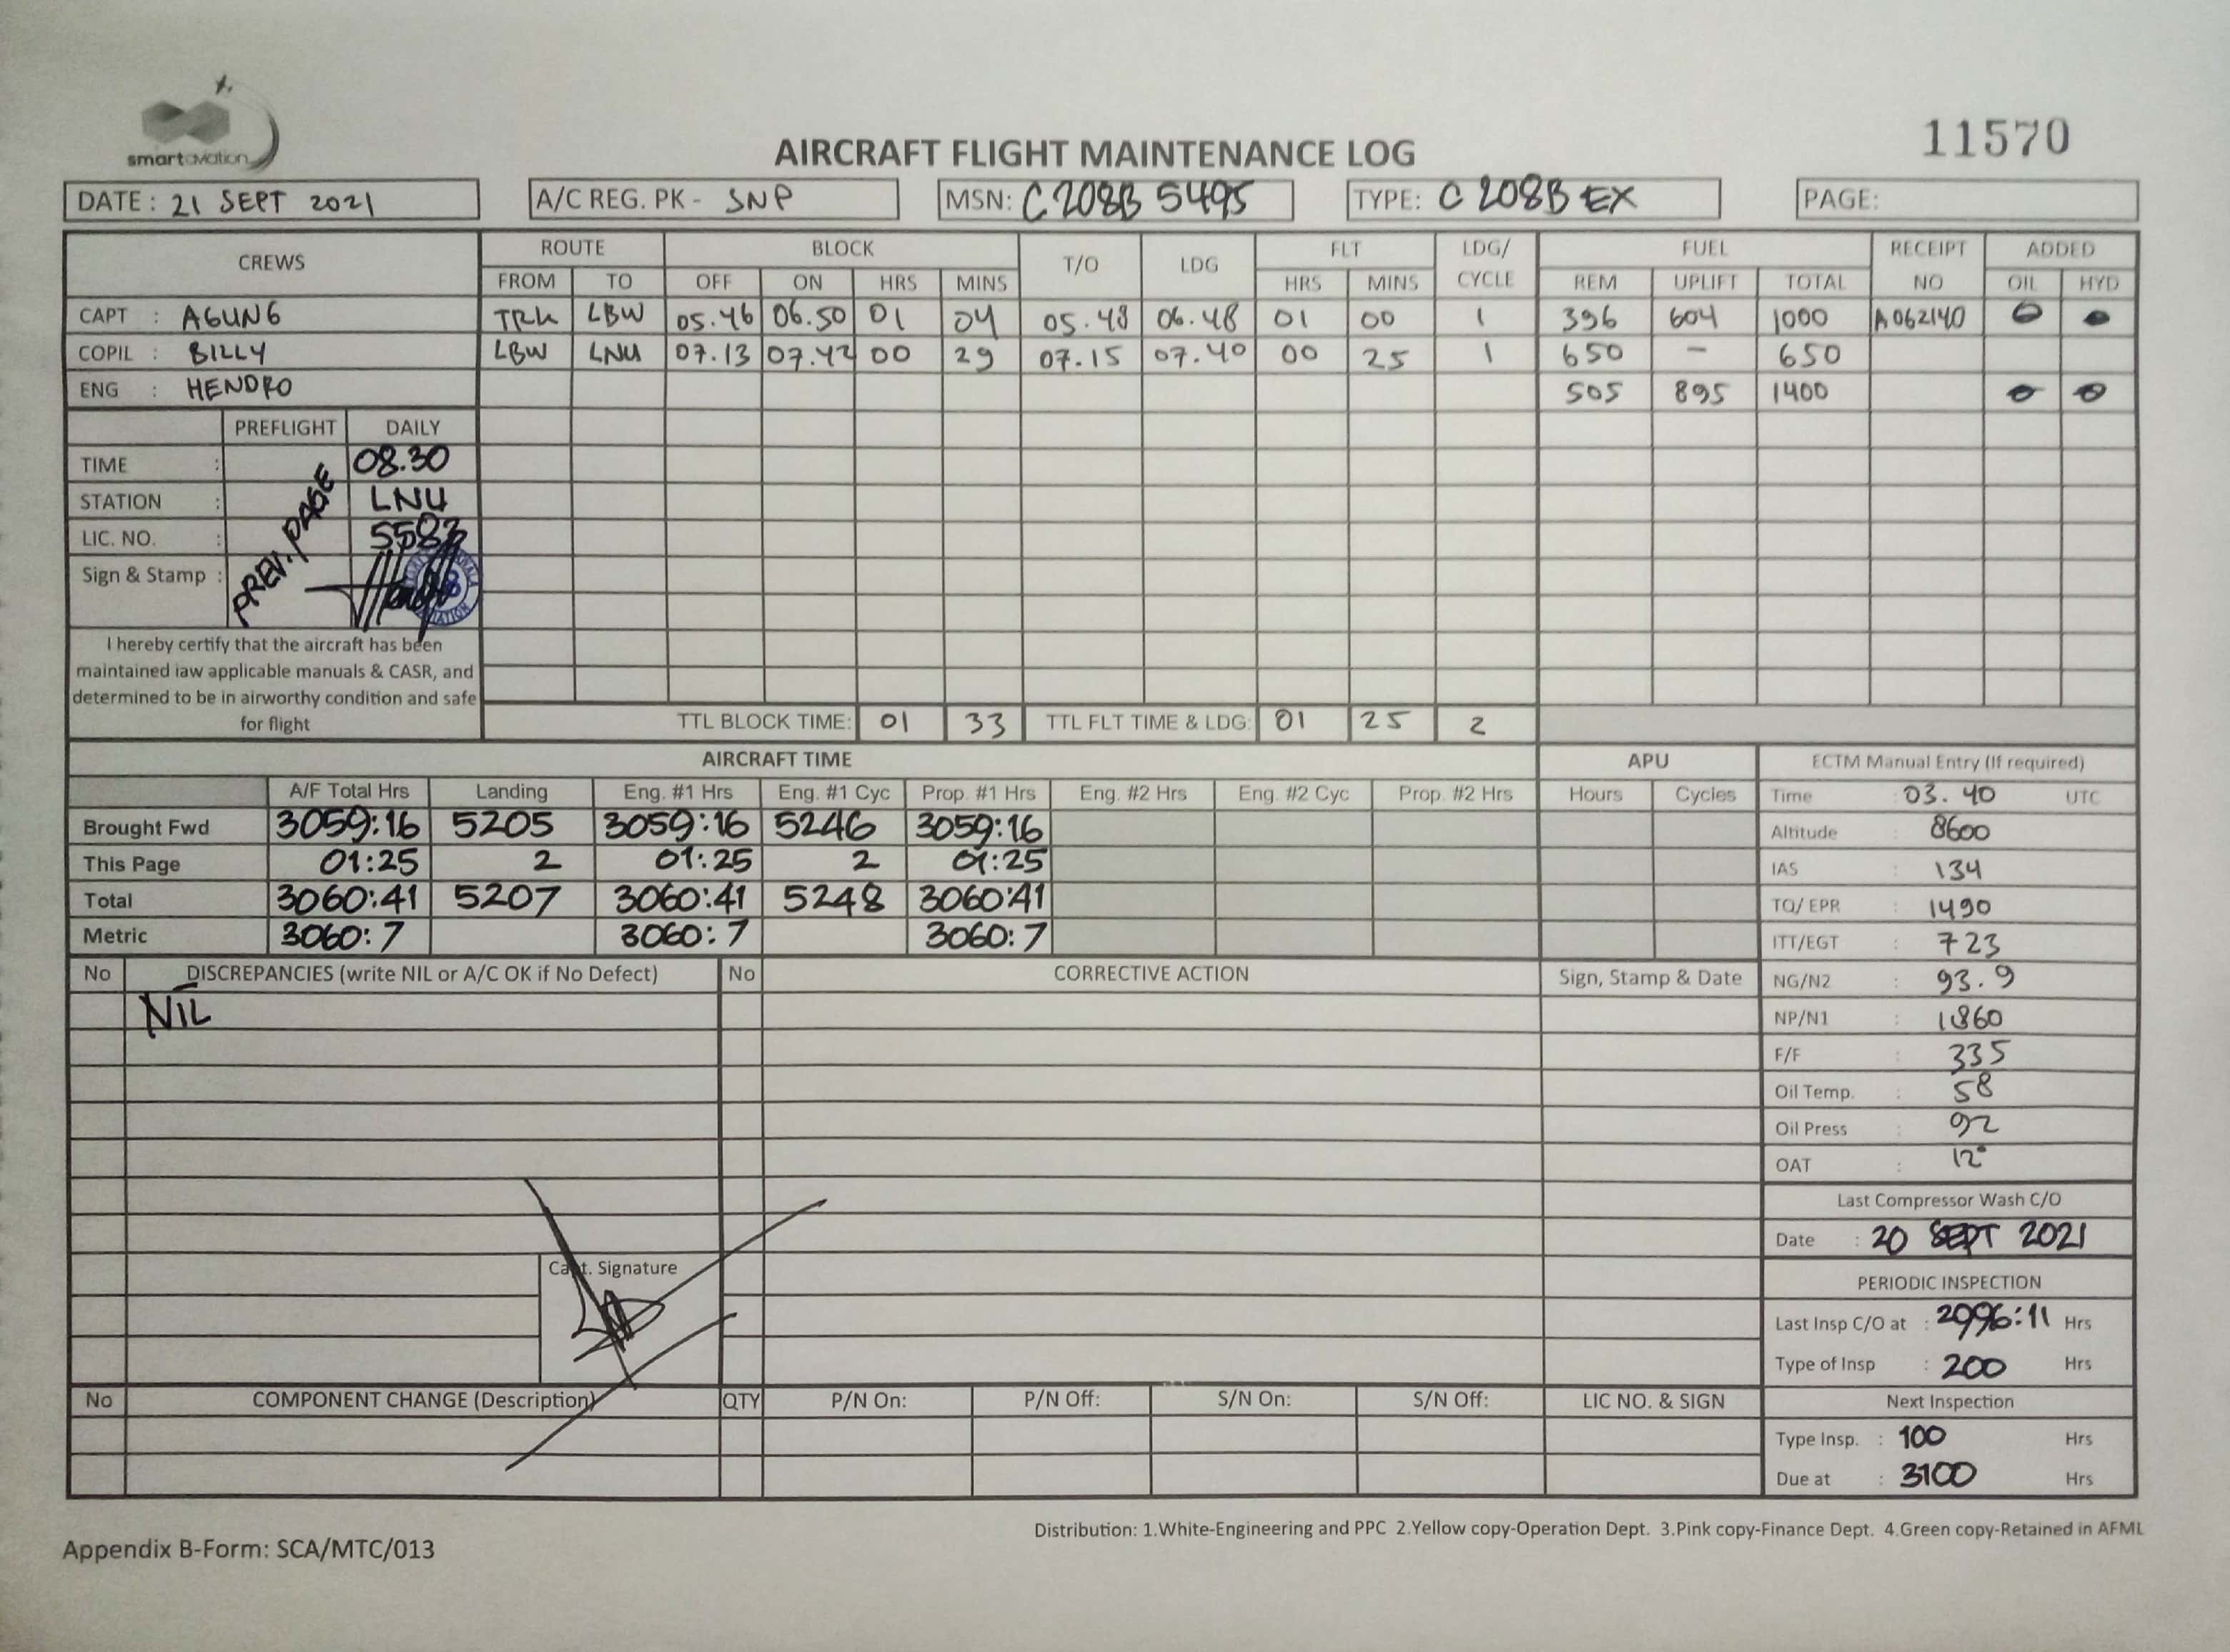 smart aviation
11570
AIRCRAFT FLIGHT MAINTENANCE LOG
DATE : 21 SEPT 2021 A/C REG. PK - SNP MSN: C 208B 5495 TYPE: C 208B EX PAGE:
CREWS ROUTE BLOCK T/O LDG FLT LDG/ FUEL RECEIPT ADDED
FROM TO OFF ON HRS MINS HRS MINS CYCLE REM UPLIFT TOTAL NO OIL HYD
CAPT : AGUNG TRK LBW 05.46 06.50 01 04 05.48 06.48 01 00 1 396 604 1000 A062140 0 0
COPIL : BILLY LBW LNU 07.13 07.42 00 29 07.15 07.40 00 25 1 650 – 650
ENG : HENDRO 505 895 1400 0 0
PREFLIGHT DAILY
TIME : 08.30
STATION : LNU
LIC. NO. : 5583
PREV. PAGE
Sign & Stamp :
I hereby certify that the aircraft has been
maintained iaw applicable manuals & CASR, and
determined to be in airworthy condition and safe
for flight
TTL BLOCK TIME: 01 33 TTL FLT TIME & LDG: 01 25 2
AIRCRAFT TIME APU ECTM Manual Entry (If required)
A/F Total Hrs Landing Eng. #1 Hrs Eng. #1 Cyc Prop. #1 Hrs Eng. #2 Hrs Eng. #2 Cyc Prop. #2 Hrs Hours Cycles Time : 03.40 UTC
Brought Fwd 3059:16 5205 3059:16 5246 3059:16 Altitude : 8600
This Page 01:25 2 01:25 2 01:25 IAS : 134
Total 3060:41 5207 3060:41 5248 3060:41 TQ/ EPR : 1490
Metric 3060:7 3060:7 3060:7 ITT/EGT : 723
No DISCREPANCIES (write NIL or A/C OK if No Defect) No CORRECTIVE ACTION Sign, Stamp & Date NG/N2 : 93.9
NIL NP/N1 : 1860
F/F : 335
Oil Temp. : 58
Oil Press : 92
OAT : 12°
Last Compressor Wash C/O
Date : 20 SEPT 2021
Capt. Signature
PERIODIC INSPECTION
Last Insp C/O at : 2996:11 Hrs
Type of Insp : 200 Hrs
No COMPONENT CHANGE (Description) QTY P/N On: P/N Off: S/N On: S/N Off: LIC NO. & SIGN Next Inspection
Type Insp. : 100 Hrs
Due at : 3100 Hrs
Distribution: 1.White-Engineering and PPC 2.Yellow copy-Operation Dept. 3.Pink copy-Finance Dept. 4.Green copy-Retained in AFML
Appendix B-Form: SCA/MTC/013